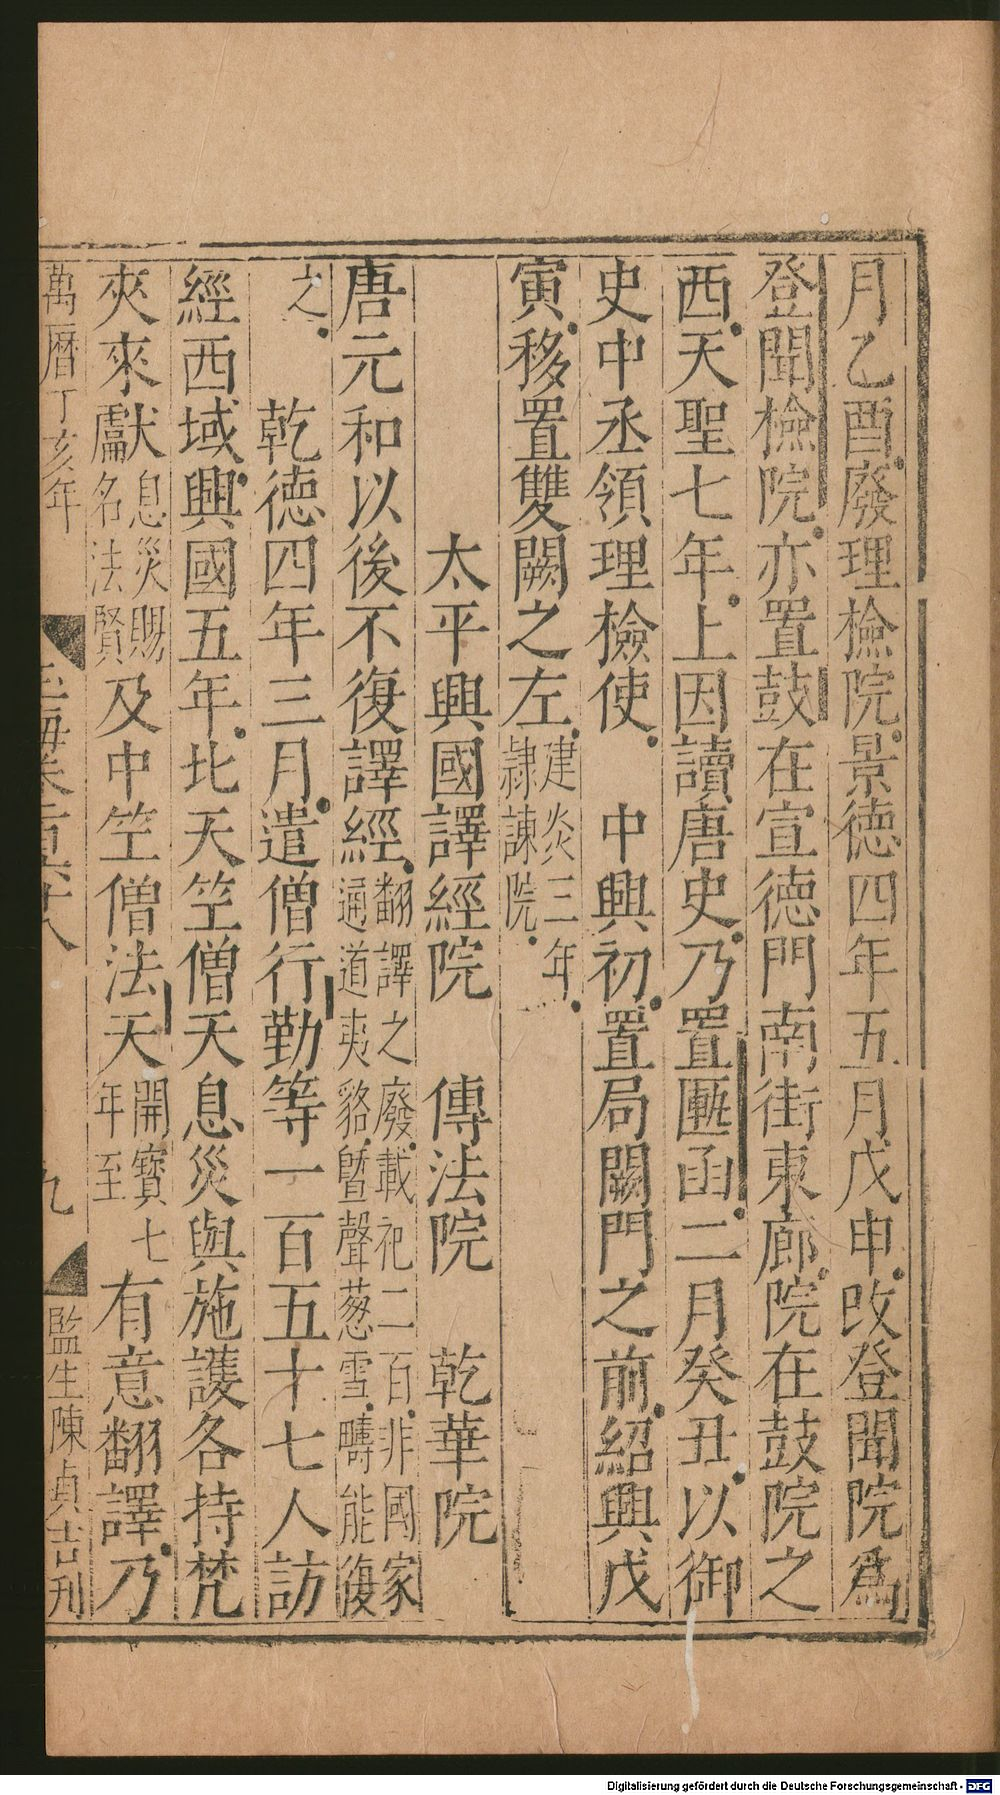 月乙酉廢理檢院景德四年五月戊申改登聞院爲
登聞檢院亦置鼓在宣德門南街東廊院在鼓院之
西天聖七年上因讀唐史乃置匭函二月癸丑以御
史中丞領理檢使 中興初置局闕門之前紹興戊
寅移置雙闕之左建炎三年隷諫院
太平興國譯經院 傳法院 乾華院
唐元和以後不復譯經翻譯之廢載祀二百非國家通道夷貉曁聲葱雪疇能復
之 乾德四年三月遣僧行勤等一百五十七人訪
經西域興國五年北天竺僧天息災與施護各持梵
夾來獻息災賜名法賢及中竺僧法天開寶七年至有意翻譯乃
萬曆丁亥年 玉海卷一百六十八 九 監生陳貞吉刊
Digitalisierung gefördert durch die Deutsche Forschungsgemeinschaft - DFG